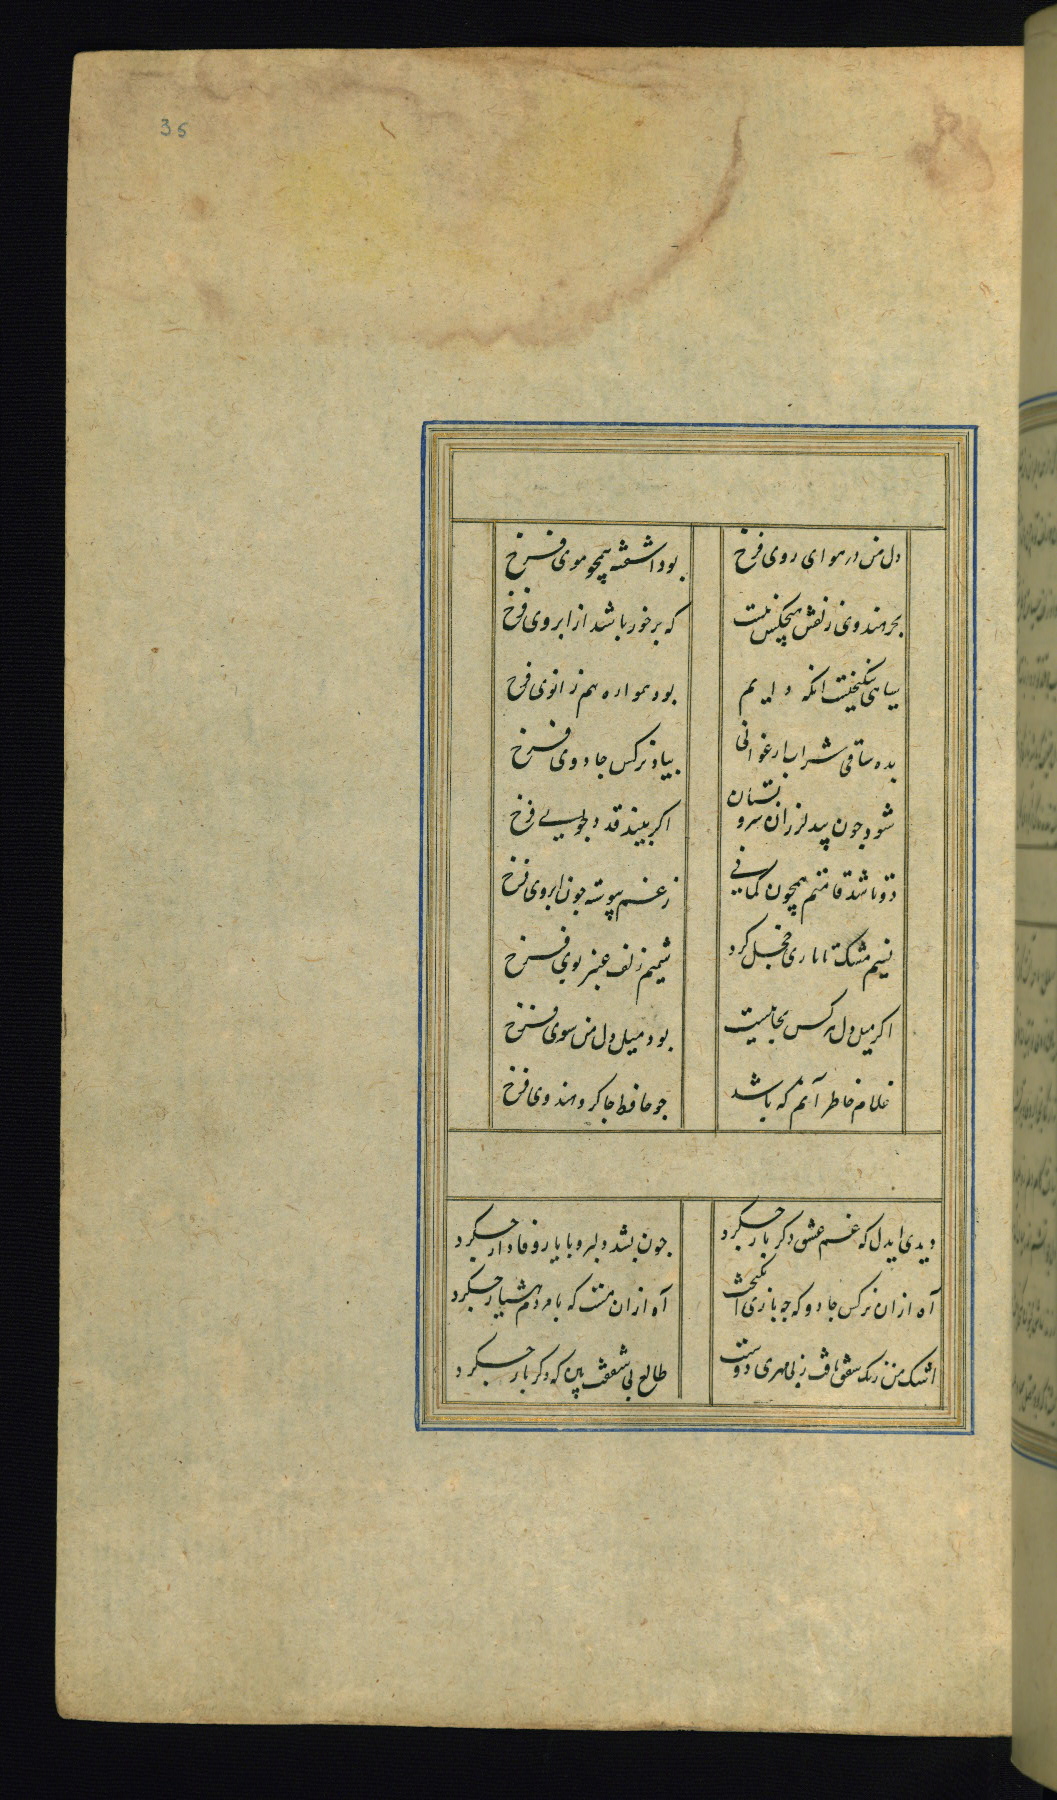 35
دل من در هوای روی فرخ
بود آشفته همچو موی فرخ
بجز هندوی زلفش هیچکس نیست
که برخوردار باشد از ابروی فرخ
سیاهی نیکبختست انکه دایم
بود همواره هم زانوی فرخ
بده ساقی شراب ارغوانی
بیاد نرکس جادوی فرخ
شود چون بید لرزان سرو بستان
اکر بیند قد دلجوی فرخ
دوتا شد قامتم همچون کمانی
ز غم پیوسته چون ابروی فرخ
نسیم مشک تاتاری خجل کرد
شمیم زلف عنبر بوی فرخ
اکر میل دل هر کس بجائیست
بود میل دل من سوی فرخ
غلام خاطر آنم که باشد
چو حافظ چاکر و هندوی فرخ
دیدی ایدل که غم عشق دکر بار چکرد
چون بشد دلبر و با یار وفادار چکرد
آه ازان نرکس جادو که چه بازی انکیخت
آه ازان مست که با مردم هشیار چکرد
اشک من رنک شفق یافت ز بی مهری دوست
طالع بی شفقت بین که دکر بار چکرد